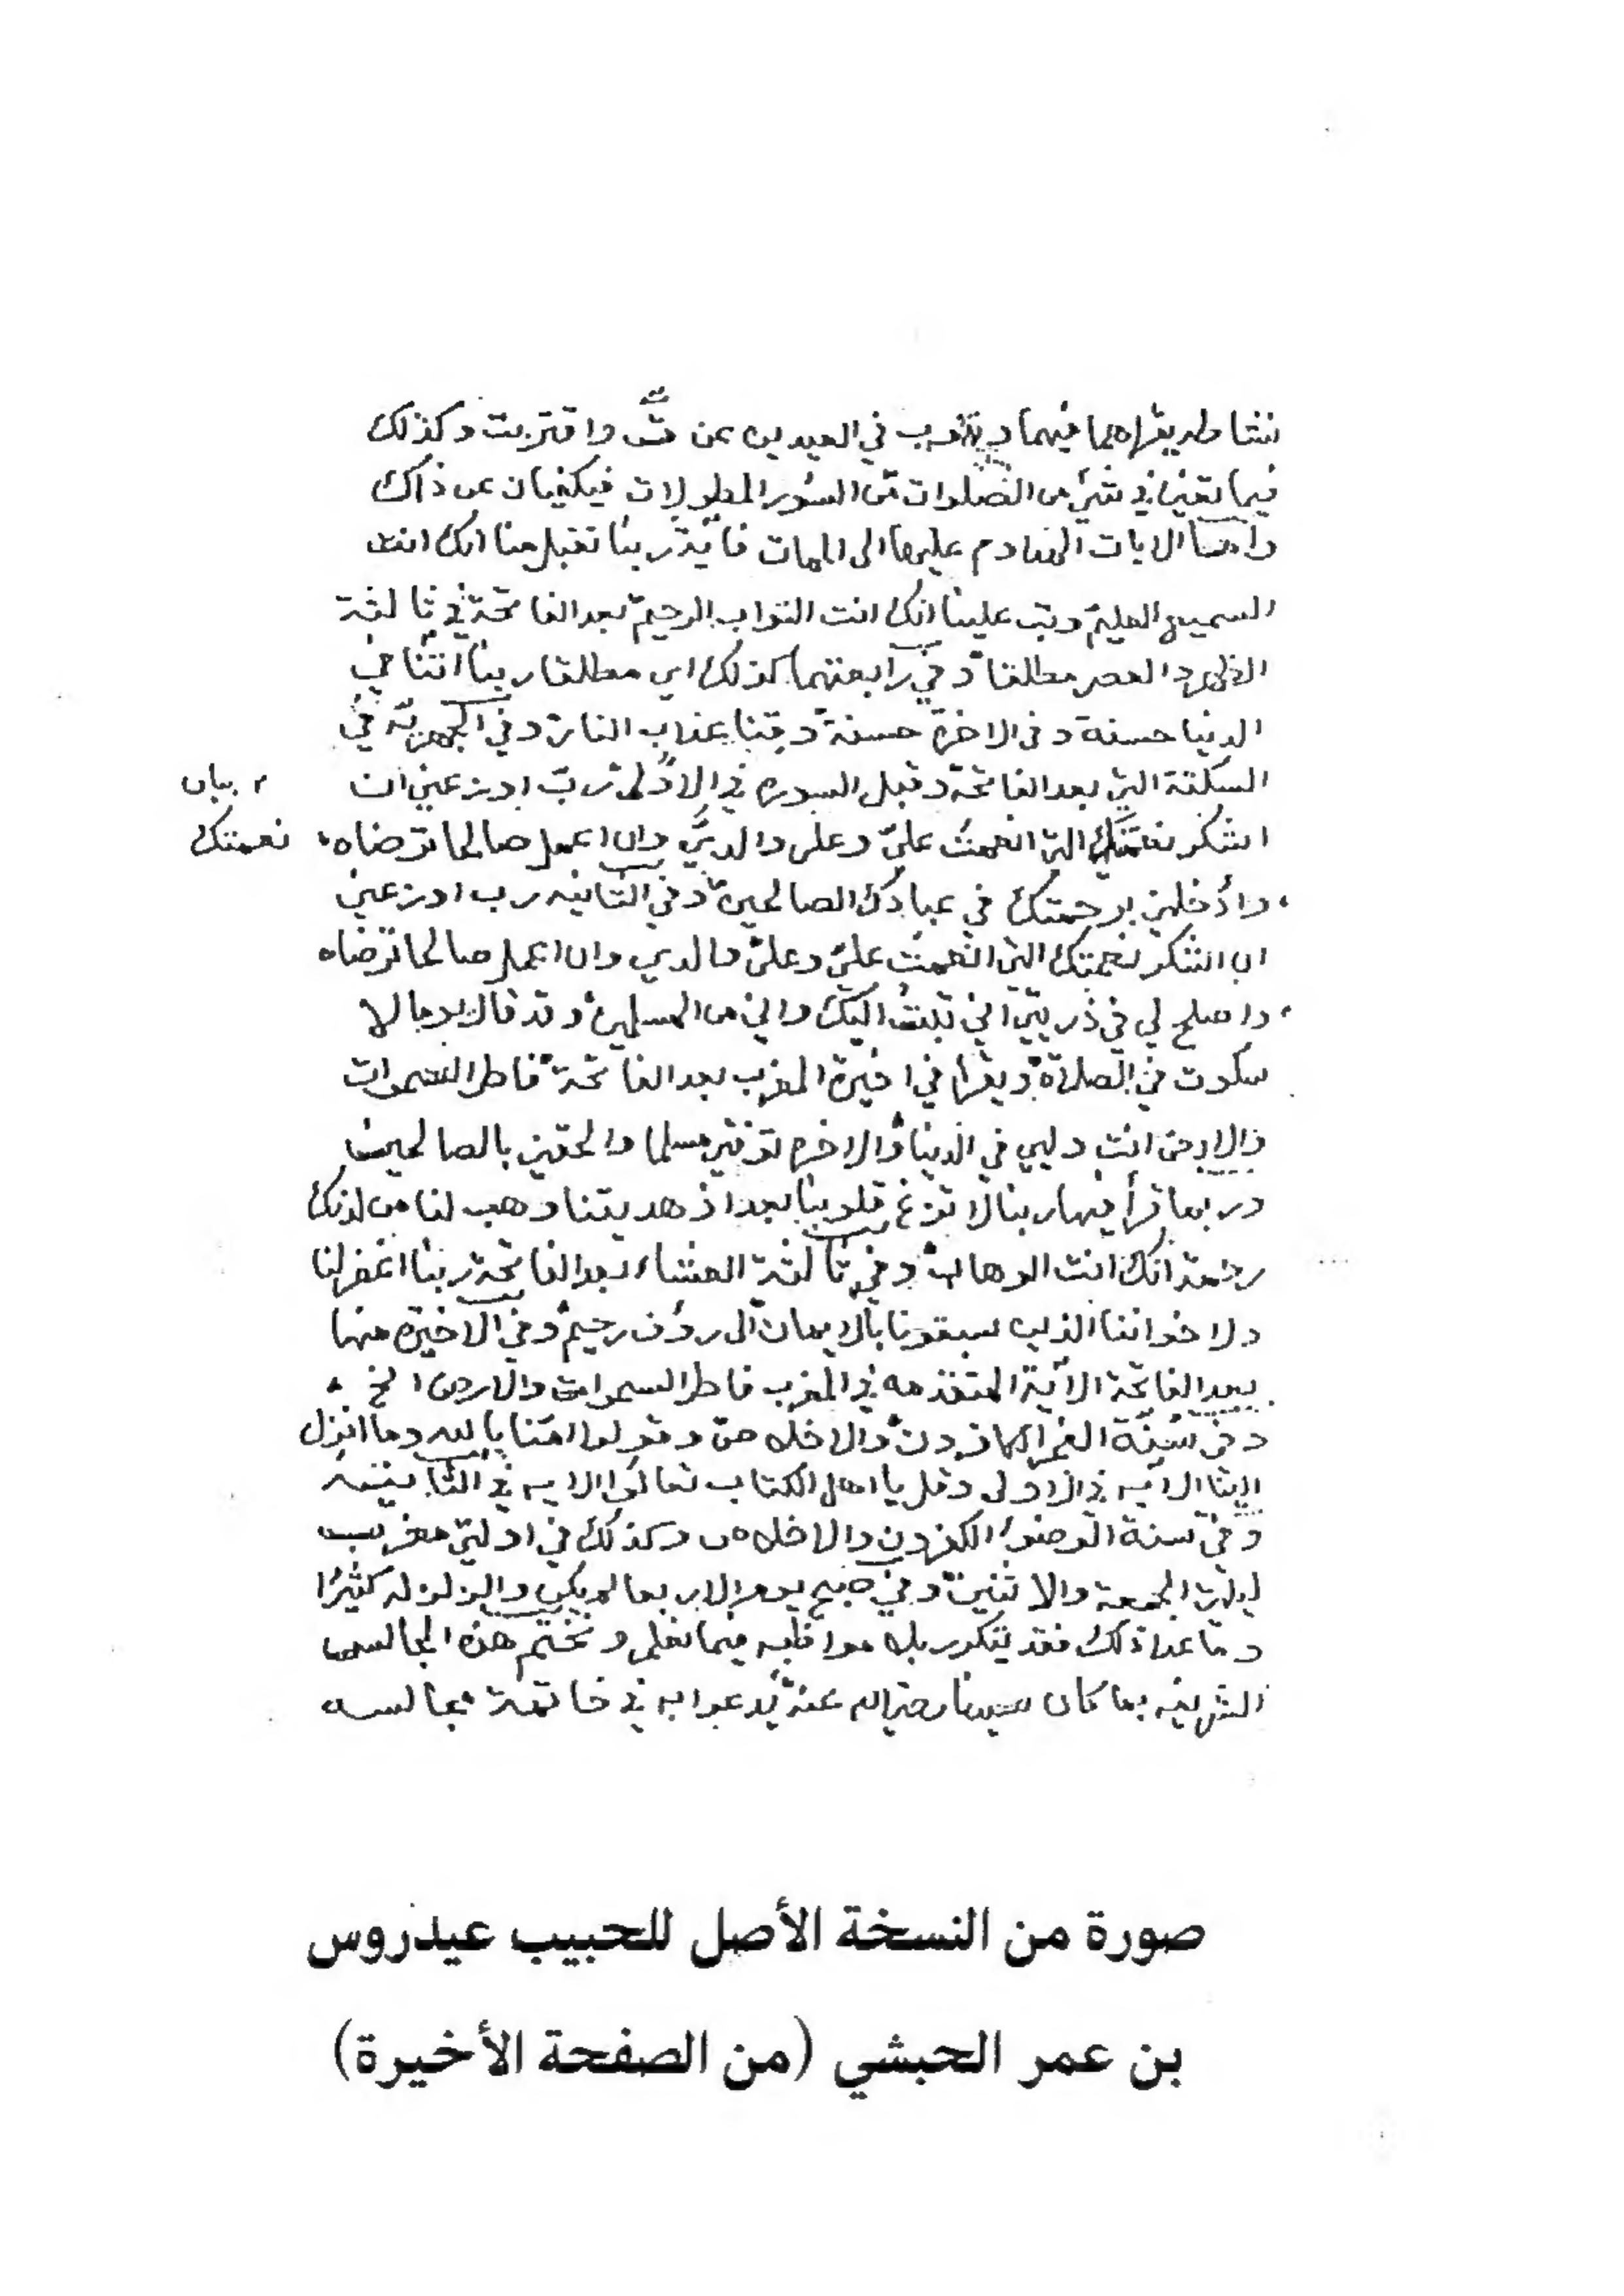 فيهما وينوب في العيدين عن ق واقتربت وكذلك
فيما تعين في شيء من الصلوات من السور المطولات فيكفيان عن ذلك
وأما الايات المداوم عليها الى الممات فآية ربنا تقبل منا انك انت
السميع العليم وتب علينا انك انت التواب الرحيم بعد الفاتحة في ثالثة
الظهر والعصر مطلقا وفي رابعتهما كذلك اي مطلقا ربنا اتنا في
الدنيا حسنة وفي الاخرة حسنة وقنا عذاب النار وفي الجهرية في
السكتة التي بعد الفاتحة وقبل السوره في الاولى رب اوزعني ان
بيان
اشكر نعمتك التي انعمت عليّ وعلى والديّ وان اعمل صالحا ترضاه
نعمتك
وأدخلني برحمتك في عبادك الصالحين وفي الثانيه رب اوزعني
ان اشكر نعمتك التي انعمت عليّ وعلى والدي وان اعمل صالحا ترضاه
واصلح لي في ذريتي اني تبت اليك واني من المسلمين وقد قال
سكوت في الصلاة ويقرأ في اخيرة المغرب بعد الفاتحة فاطر السموات
والارض انت وليي في الدنيا والاخره توفني مسلما والحقني بالصالحين
وربما قرأ فيها ربنا لا تزغ قلوبنا بعد اذ هديتنا وهب لنا من لدنك
رحمة انك انت الوهاب وفي ثالثة العشاء بعد الفاتحة ربنا اغفر لنا
ولاخواننا الذين سبقونا بالايمان الى رؤف رحيم وفي الاخيرة منها
بعد الفاتحة الآية المتقدمه في المغرب فاطر السموات والارض الخ
وفي سنة الفجر الكافرون والاخلاص وقولوا امنا بالله وما انزل
الينا الآيه في الاولى وقل يا اهل الكتاب تعالوا الايه في الثانيه
وفي سنة الوضوء الكفرون والاخلاص وكذلك في اولتي مغرب
ليلة الجمعة والاثنين وفي صبح يوم الاربعا لم يكن والزلزله كثيرًا
وما عدا ذلك فقد يتكرر بلا مواظبه فيما نعلم ونختم هذه المجالس
الشريفه بما كان سيدنا رضي الله عنه يدعوا به في خاتمة مجالسه
صورة من النسخة الأصل للحبيب عيدروس
بن عمر الحبشي (من الصفحة الأخيرة)